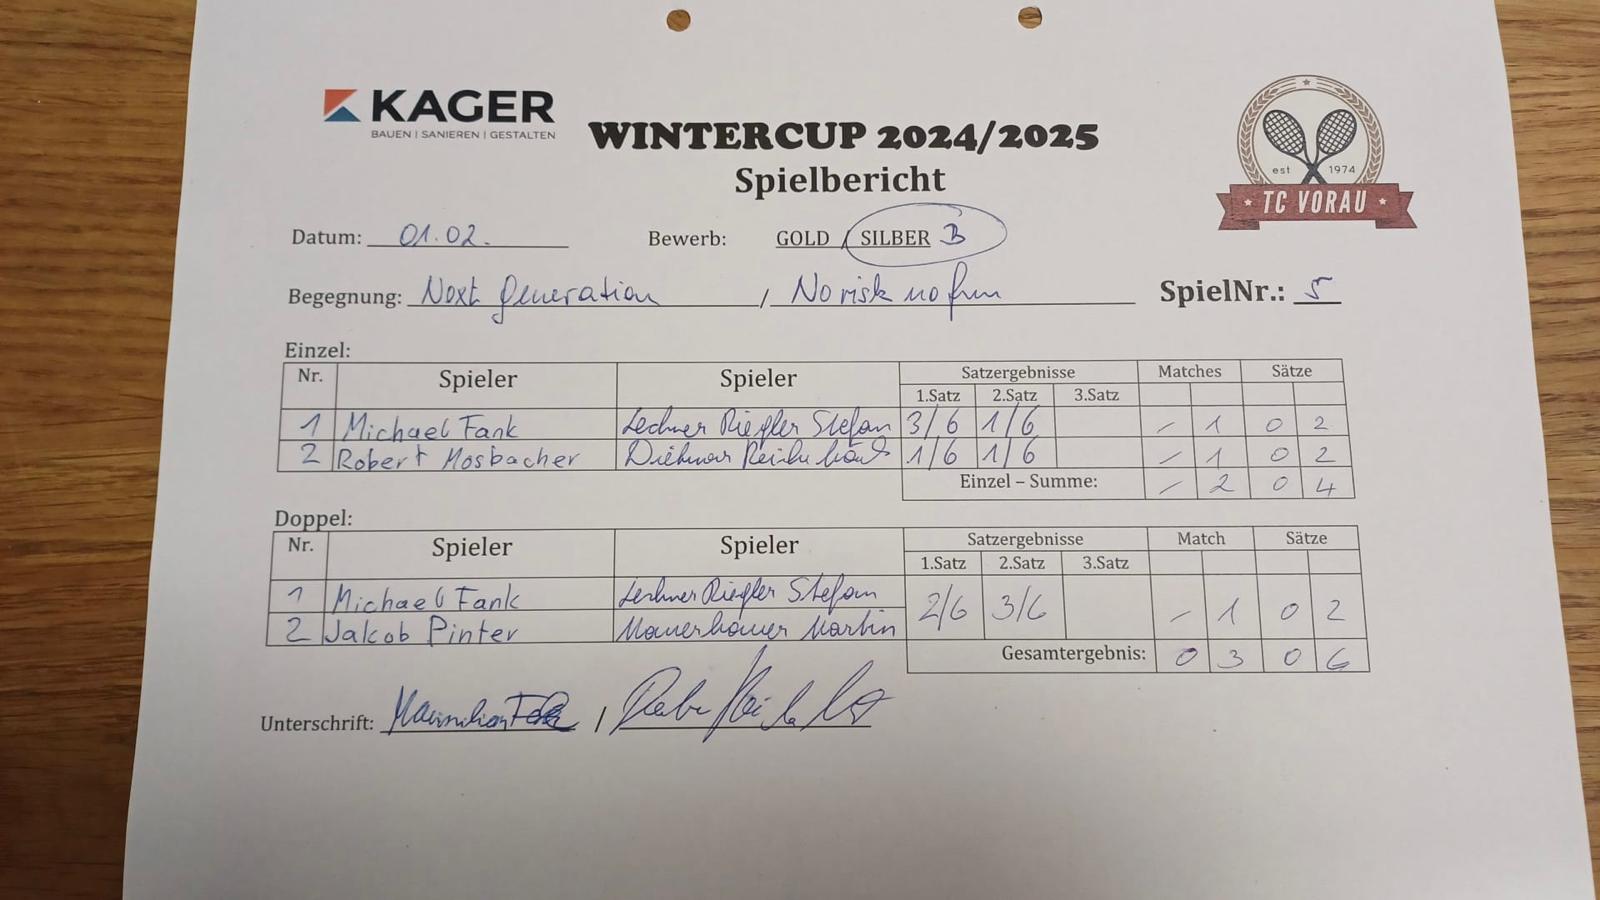 KAGER
BAUEN | SANIEREN | GESTALTEN
WINTERCUP 2024/2025
Spielbericht
est 1974
TC VORAU
Datum: 01.02. Bewerb: GOLD / SILBER B
Begegnung: Next Generation / No risk no fun SpielNr.: 5
Einzel:
Nr. Spieler Spieler Satzergebnisse Matches Sätze
1.Satz 2.Satz 3.Satz
1 Michael Fank Lechner Riegler Stefan 3/6 1/6 - 1 0 2
2 Robert Mosbacher Dietmar 1/6 1/6 - 1 0 2
Einzel – Summe: - 2 0 4
Doppel:
Nr. Spieler Spieler Satzergebnisse Match Sätze
1.Satz 2.Satz 3.Satz
1 Michael Fank Lechner Riegler Stefan 2/6 3/6 - 1 0 2
2 Jakob Pinter Martin
Gesamtergebnis: 0 3 0 6
Unterschrift: Maximilian /